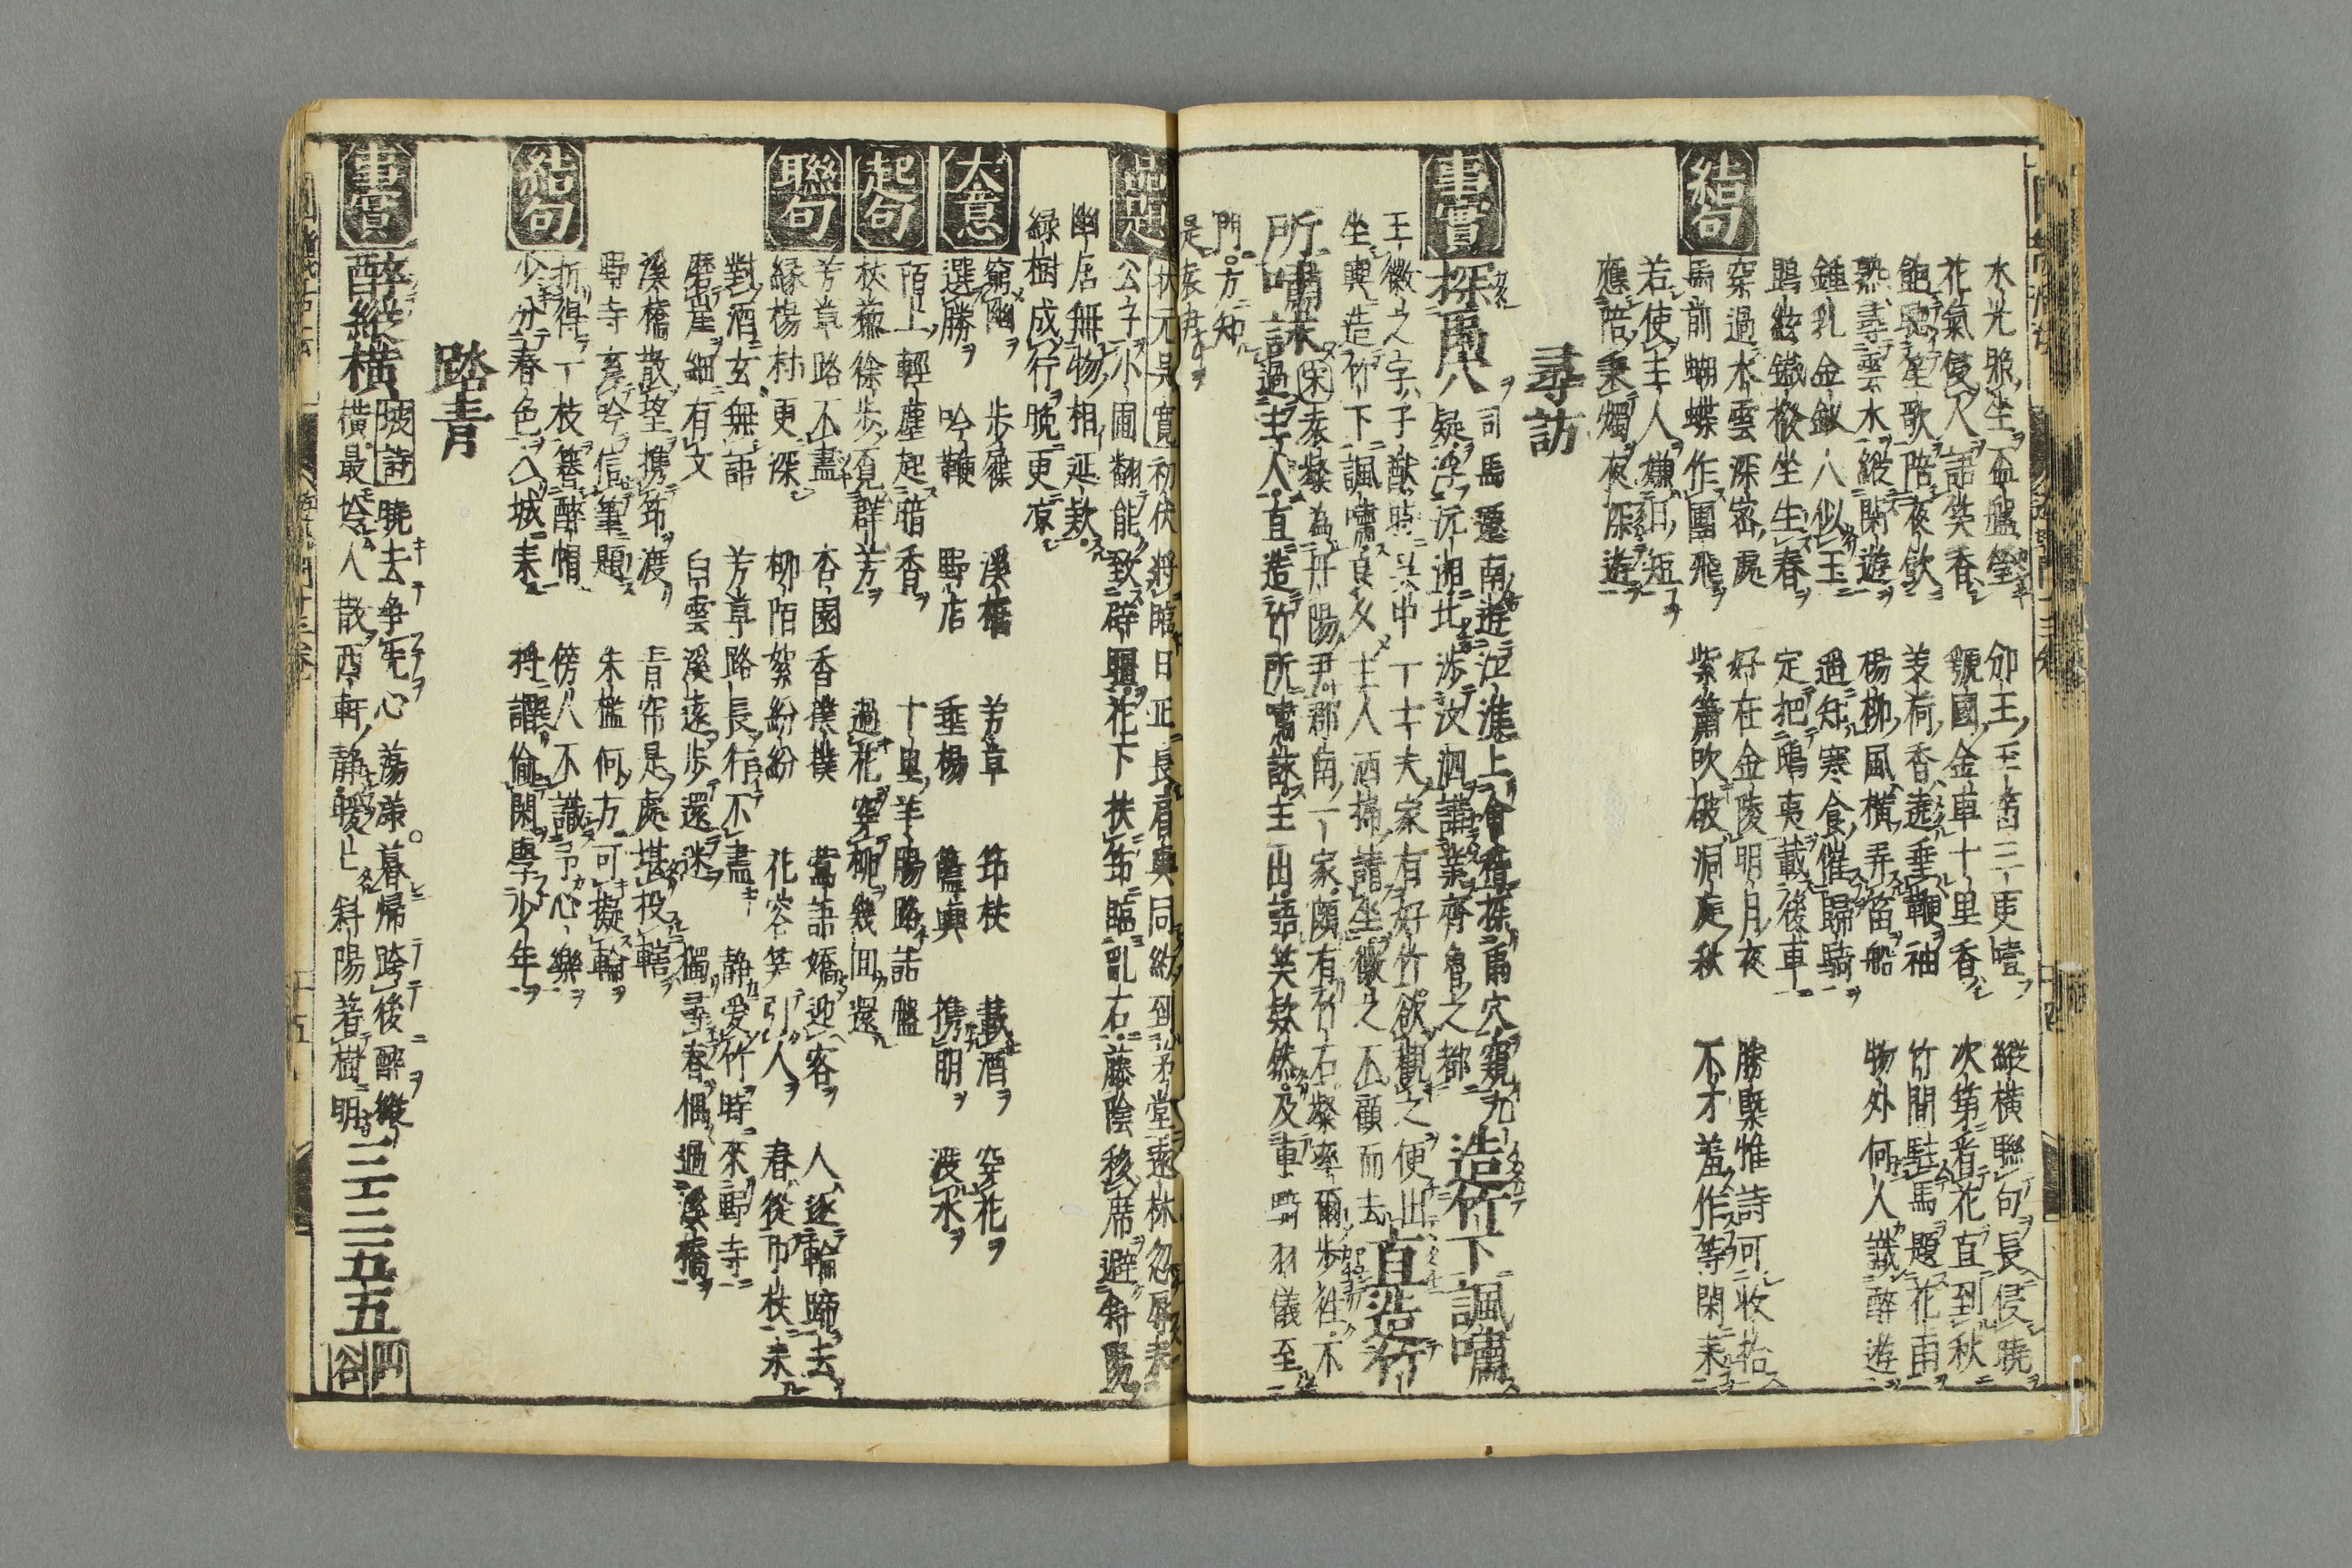 水光照坐盃盤瑩 卯王王舍三更噎 縱橫聯句長侵曉
花氣侵人語笑香 虢國金車十里香 次第看花直到秋
鉋聽笙歌陪夜飲 芰荷香遶垂鞭袖 竹間駐馬題花雨
熟尋雲水縱閑遊 楊柳風橫弄笛船 物外何人識醉遊
鍾乳金釵八似玉 過知寒食催歸騎
鵾絃鐵撥坐生春 定把鴟夷載後車
結句
穿過水雲深密處 好在金陵明月夜 勝槩惟詩可收拾
馬前蝴蝶作團飛 紫簫吹破洞庭秋 不才羞作等閑來
若使主人嫌日短
應陪秉燭夜深遊
尋訪
事實
探禹穴 司馬遷南遊江淮上會稽探禹穴窺九
疑浮沅湘北涉汶泗講業齊魯之都
造竹下諷嘯
王徽之字子猷時吳中一士夫家有好竹欲觀之便出
坐輿造竹下諷嘯良久主人洒掃請坐徽之不顧而去
直造竹
所嘯詠
宋袁粲為丹陽尹郡南一家頗有竹石粲率爾步往不
過主人直造竹所嘯詠主出語笑款然及車騎羽儀至
門方知
是袁尹
品題
狄元吳寬初伏將臨日正長肩輿同約到茅堂逐林忽
公子小圃翻能致辟疆花下扶筇臨亂石藤陰移席避斜陽
幽居無物相延款
綠樹成行晚更凉
大意
窮幽 步屧 溪橋 芳草 筇杖 載酒 穿花
選勝 吟鞭 野店 垂楊 籃輿 携朋 渡水
起句
陌上輕塵起暗香 十里羊腸路詰盤
扶藜徐步覓群芳 過花穿柳幾回還
聯句
芳草路不盡 杏園香撲撲 鶯語嬌迎客 人逐輪蹄去
綠楊村更深 柳陌絮紛紛 花容笑引人 春從巾杖來
對酒玄無語 芳草路長行不盡 靜愛竹時來野寺
磨崖細有文 白雲溪遠步還迷 獨尋春偶過溪橋
溪橋散望携筇渡 青帘是處堪投轄
野寺高吟信筆題 朱檻何方可擬輪
結句
折得一枝簪醉帽 傍人不識予心樂
少分春色入城來 將謂偷閑學少年
踏青
事實
醉縱橫 坡詩 曉去爭先心蕩漾。暮歸跨後醉縱
橫最怜人散西軒靜曖曖斜陽著樹明
三三五五 四谷